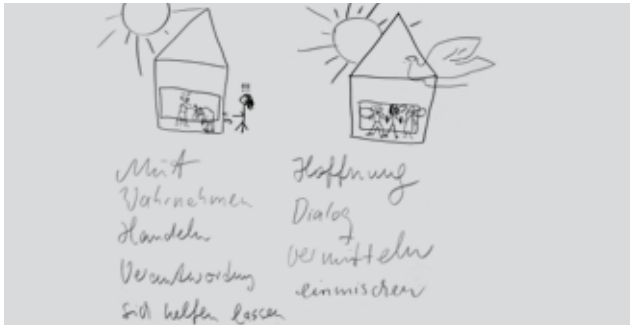 !!!
Mut
Wahrnehmen
Handeln
Verantwortung
sich helfen lassen
Hoffnung
Dialog
vermitteln
einmischen